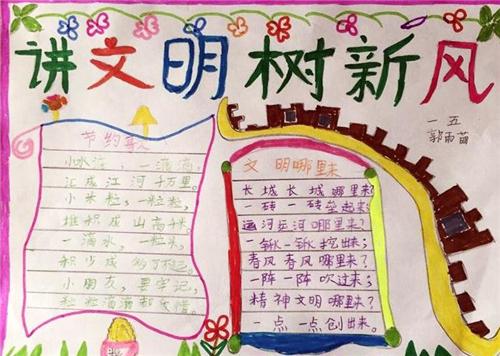 讲文明树新风
一五
郭雨苗
节约歌
小水滴，一滴滴，
汇成江河千万里。
小米粒，一粒粒，
堆积成山高千米。
一滴水，一粒米，
积少成多了不起。
小朋友，要牢记，
粒粒滴滴都爱惜。
文明哪里来
长城长城哪里来？
一砖一砖垒起来；
运河运河哪里来？
一锹一锹挖出来；
春风春风哪里来？
一阵一阵吹过来；
精神文明哪里来？
一点一点创出来。